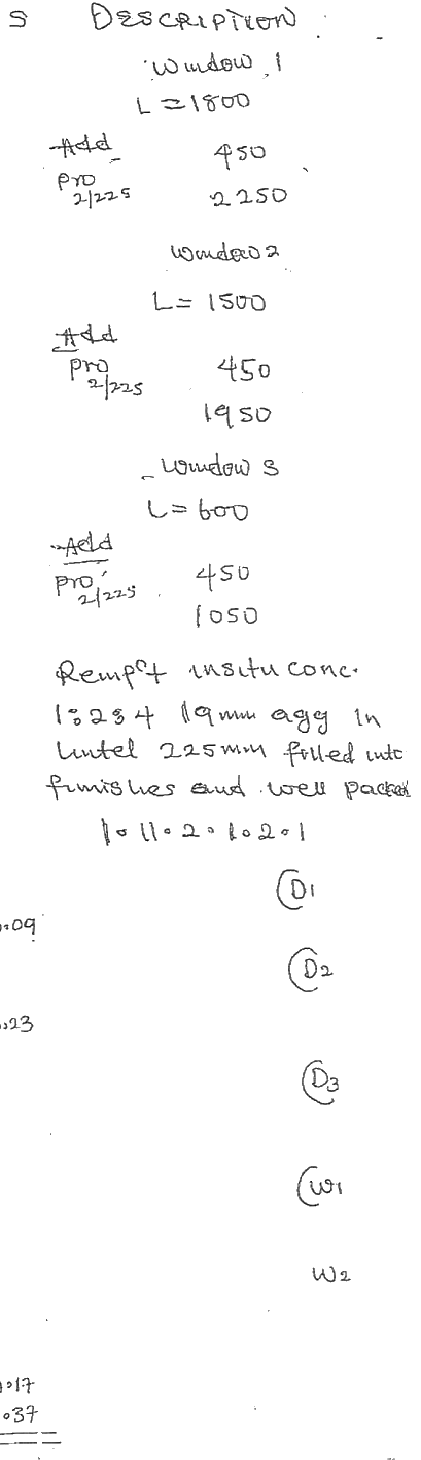 S DESCRIPTION
Window 1
L = 1800
Add 450
Pro 2/225 2250
Window 2
L = 1500
Add
Pro 2/225 450
1950
Window 3
L = 600
Add
Pro 2/225 450
1050
insitu conc.
1:2:4 19mm agg in
lintel 225mm filled into
finishes and well packed
1.11.2.1.2.1
D1
.09
D2
.23
D3
W1
W2
.17
.037